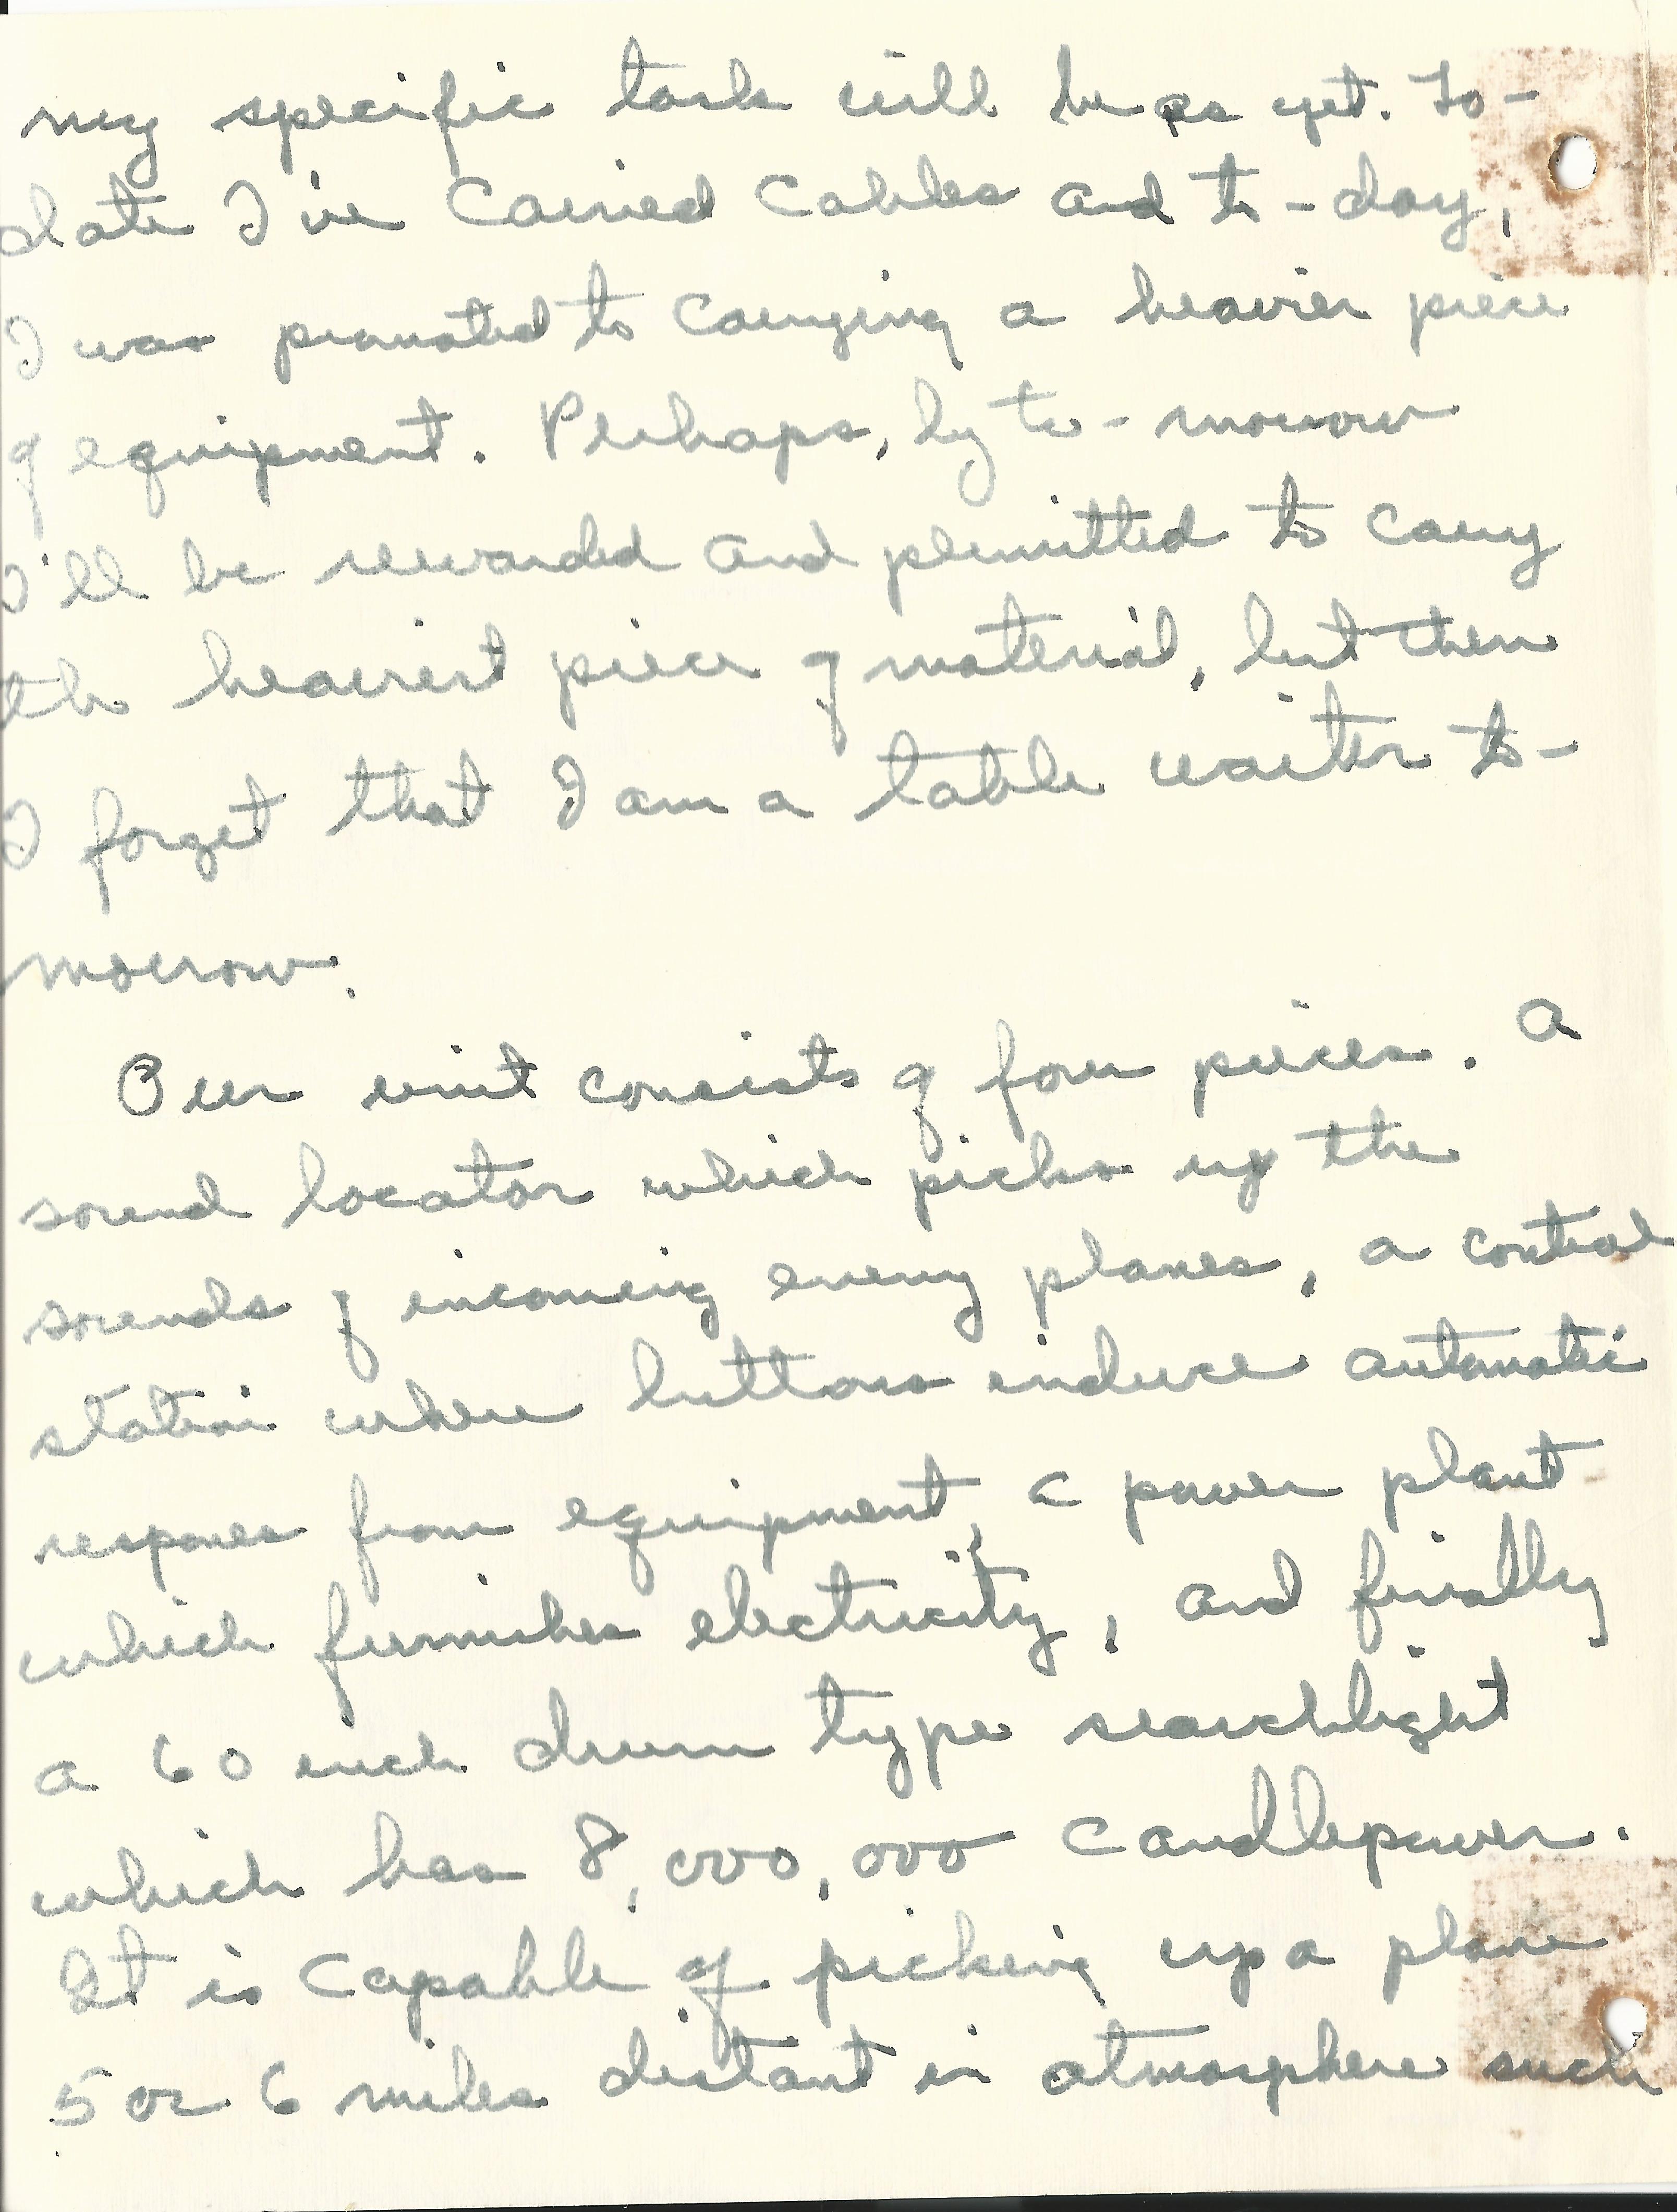 my specific task will be as yet. To-
date I've carried cables and to-day,
I was promoted to carrying a heavier piece
of equipment. Perhaps, by to-morrow
I'll be rewarded and permitted to carry
the heaviest piece of material, but then
I forget that I am a table waiter to-
morrow.
Our unit consists of four pieces. A
sound locator which picks up the
sounds of incoming enemy planes, a control
station where buttons induce automatic
response from equipment, a power plant
which furnishes electricity, and finally
a 60 inch drum type searchlight
which has 8,000,000 candlepower.
It is capable of picking up a plane
5 or 6 miles distant in atmosphere such